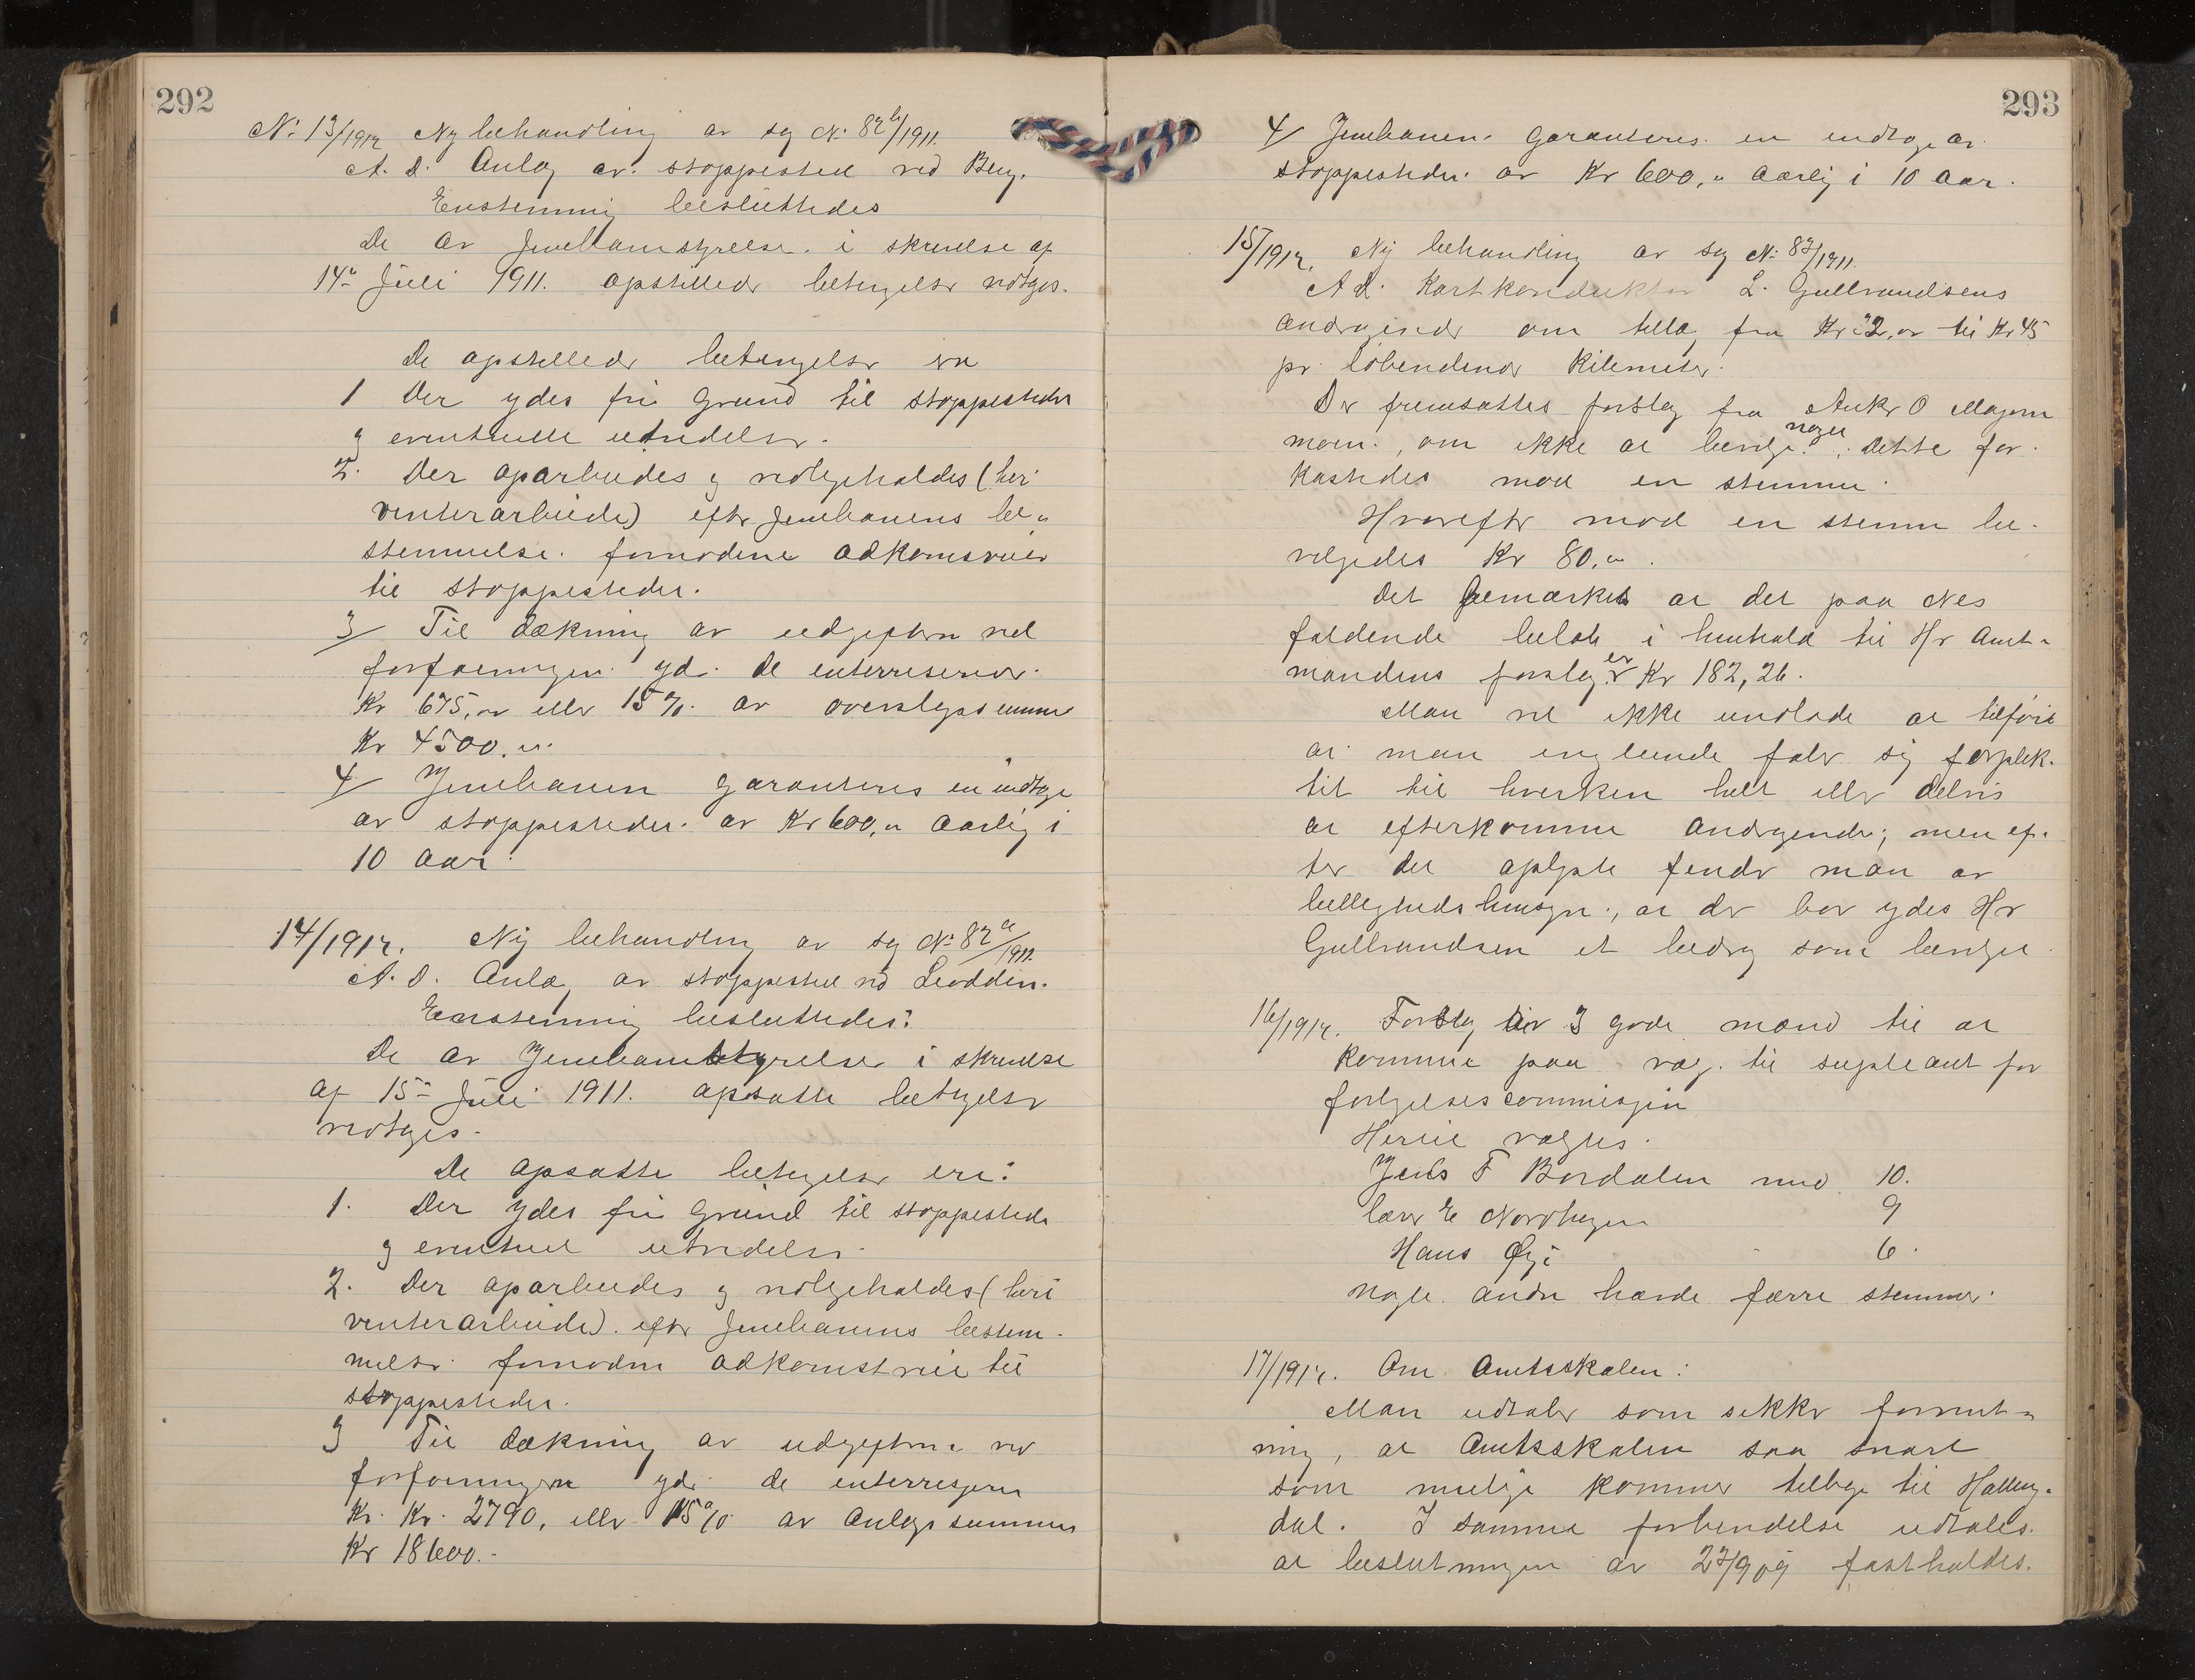 292
No 13/1912 Ny behandling av sag No 82 b/1911.
A. d. Anlæg av stoppested ved Berg.
Enstemmig besluttedes
De av Jernbanestyrelse i skrivelse af
14de Juli 1911. opstillede betingelser vedtages.
De opstillede betingelser er
1 Der ydes fri Grund til stoppestedet
og eventuelle utvidelser.
2. Der oparbeides og vedligeholdes (heri
vinterarbeide) efter Jernbanens be-
stemmelse fornødne adkomstveier
til stoppestedet.
3/ Til dækning av udgifterne ved
forføiningen yder de interresserede
Kr 675,00 eller 15 % av overslagssummen
Kr 4500,00.
4/ Jernbanen garanteres en indtægt
av stoppestedet av Kr 600,00 aarlig i
10 aar.
14/1912. Ny behandling av sag No 82 a/1911.
A. d. Anlæg av stoppested ved
Enstemmig besluttedes:
De av Jernbanestyrelse i skrivelse
af 15de Juli 1911. opsatte betingelser
vedtages.
De opsatte betingelser er:
1. Der ydes fri Grund til stoppestedet
og eventuel utvidelse.
2. Der oparbeides og vedligeholdes (heri
vinterarbeide) efter Jernbanens bestem-
melse fornødne adkomstveie til
stoppestedet.
3 Til dækning av udgifterne ved
forføiningen yder de interresserede
Kr. Kr. 2790, eller 15 % av Anlægssummen
Kr 18600.-
293
4/ Jernbanen garanteres en indtægt av
stoppestedet av Kr 600,00 aarlig i 10 aar.
15/1912. Ny behandling av sag No 87/1911.
A. d. Kartkonduktør L. Gulbrandsens
andragende om tillæg fra Kr 32,00 til Kr 45
pr. løbendende Kilemeter.
Der fremsattes forslag fra Anker O
om ikke at bevilge noget. Dette for-
kastedes mod en stemme.
Hvorefter mod en stemme be-
vilgedes Kr 80,00.
Det bemærkes at det paa Nes
faldende beløb i henhold til Hr Amt-
mandens forslag er Kr 182,26.
Man vil ikke undlade at tilføie
at man ingenlunde føler sig forplik-
tit til hverken helt eller delvis
at efterkomme andragende; men ef-
ter det oplyste finder man av
billighedshensyn, at der bør ydes Hr
Gulbrandsen et bidrag som bevilget
16/1912. Forslag til 3 gode mænd til at
komme paa valg til supleant for
forligelsescommisjon
Hertil valgtes.
Jens F Bordalen med 10.
lærer E Nordhagen 9
Hans Øji 6.
Nogle andre havde færre stemmer.
17/1912. Om Amtsskolen:
Man udtaler som sikker forvent-
ning, at Amtsskolen saa snart
som mulig kommer tilbage til Halling-
dal. I samme forbindelse udtales
at beslutningen av 27/9 09 fastholdes.